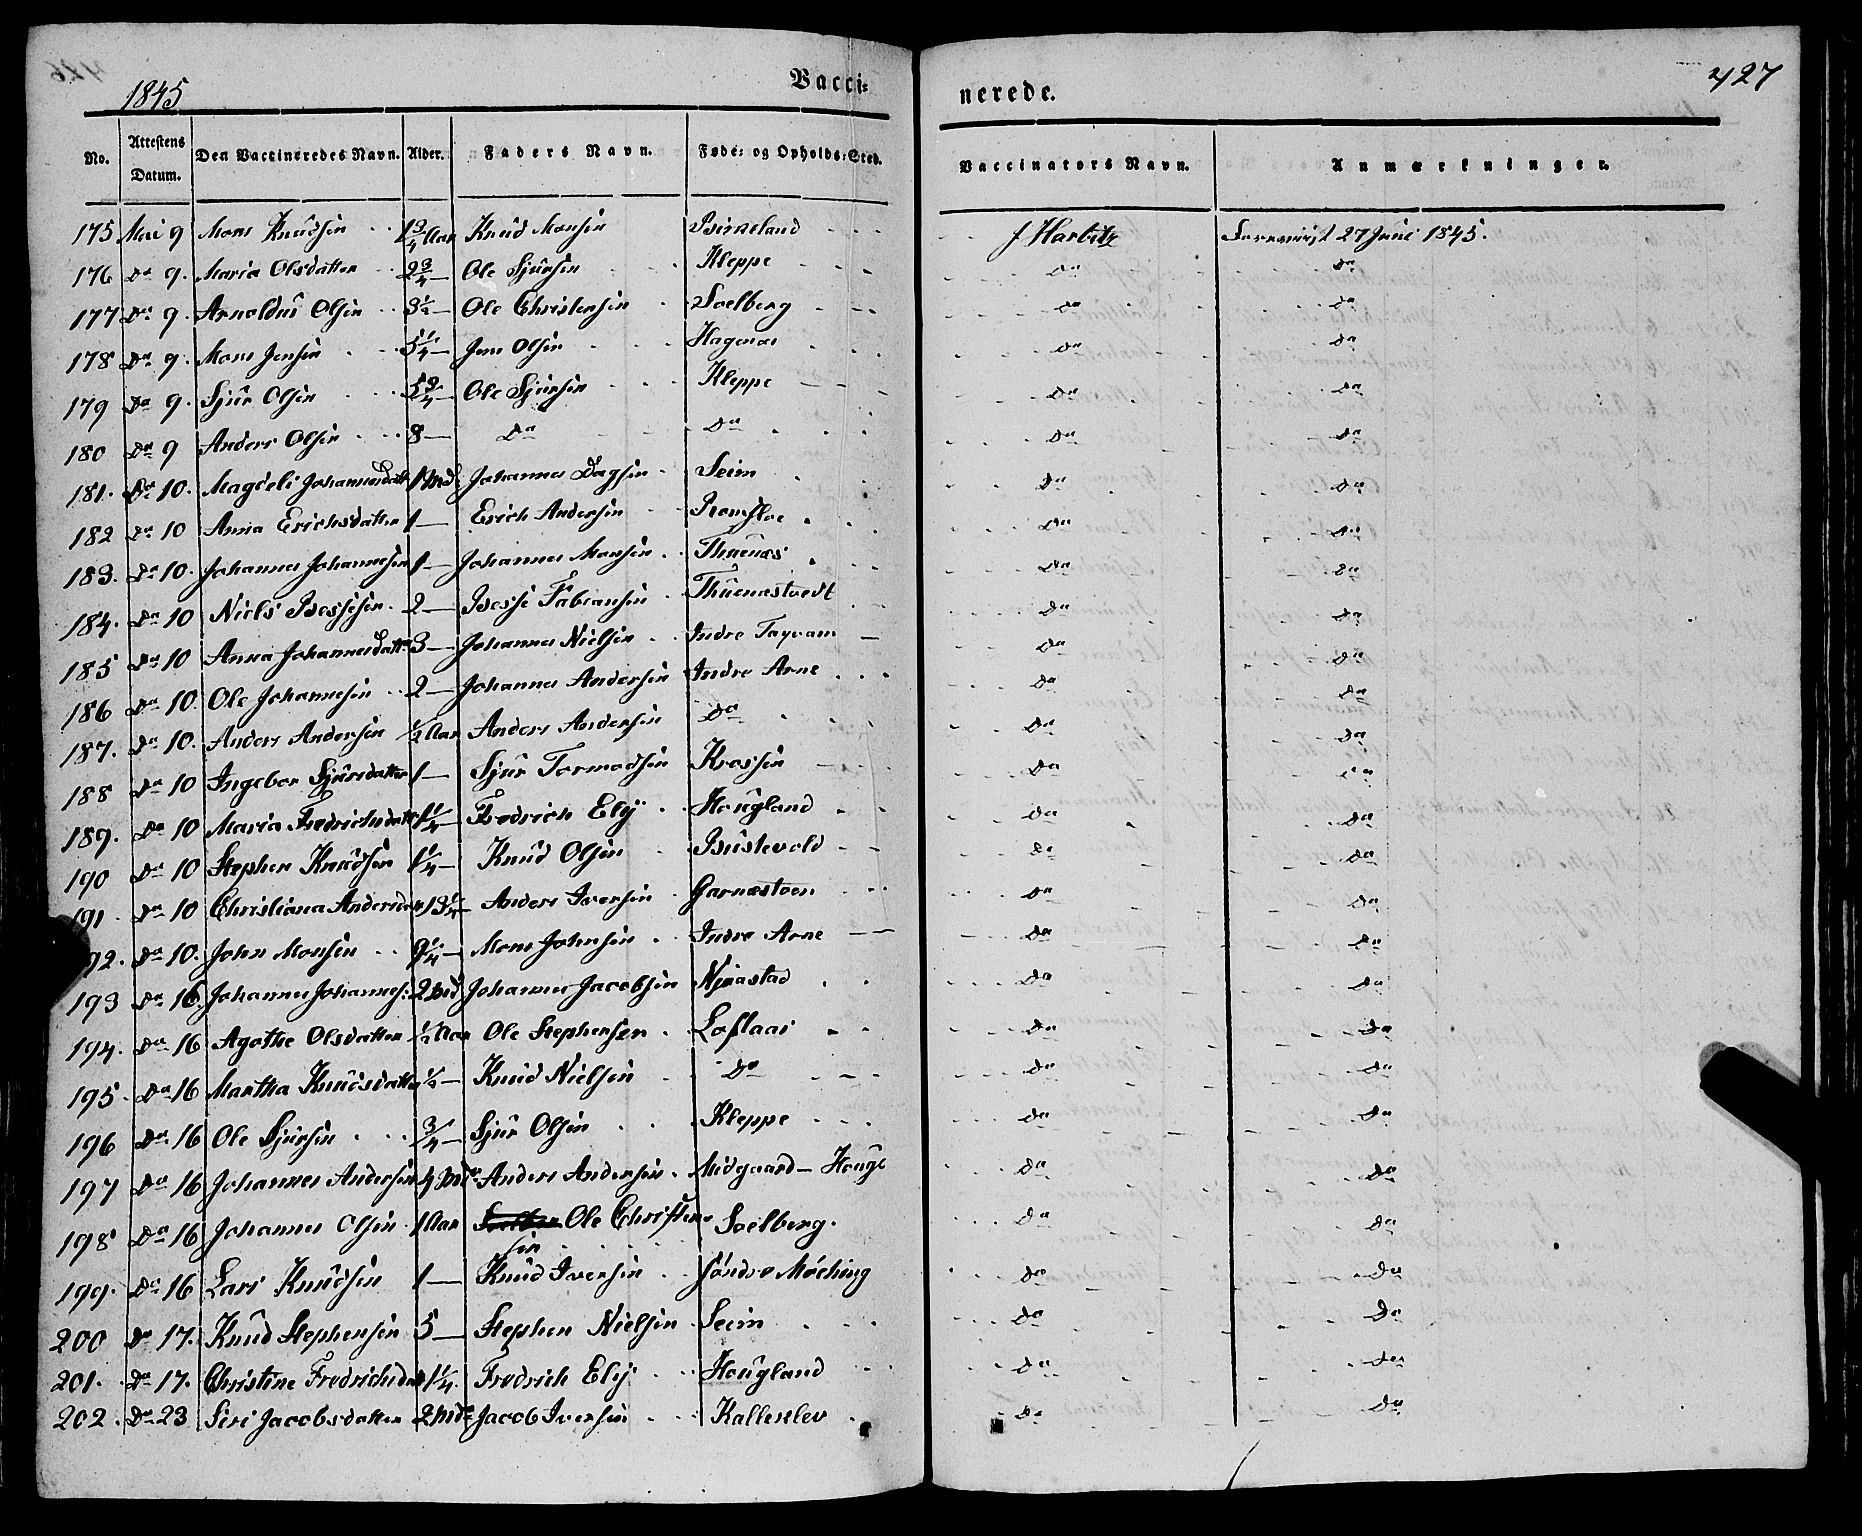 1845 Vacci- nerede. 427
No. Attestens Datum. Den Vaccineredes Navn. Alder. Faders Navn. Føde- og Opholds-Sted. Vaccinators Navn. Anmærkninger.
175 Mai 9 Mons Knudsen 1 3/4 Aar Knud Monsen Birkeland J Harbitz 27 Juni 1845.
176 Do 9. Maria Olsdatter 2 3/4 — Ole Sjursen Kleppe Do Do
177 Do 9. Arnoldus Olsen 3 1/2 — Ole Christensen Soelberg Do Do
178 Do 9. Mons Jensen 5 1/4 — Jens Olsen Hagenæs Do Do
179 Do 9. Sjur Olsen 5 3/4 — Ole Sjursen Kleppe Do Do
180 Do 9 Anders Olsen 8 — Do Do Do Do
181. Do 10. Magdeli Johannesdatt 1 Md. Johannes Dagsen Seim Do Do
182 Do 10 Anna Erichsdatter 1 — Erich Andersen Romsloe Do Do
183. Do 10. Johannes Johannesen 1 — Johannes Monsen Thuenæs Do Do
184. Do 10 Niels Bessesen 2 — Besse Fabiansen Thuenæstvedt Do Do
185 Do 10 Anna Johannesdatter 3 — Johannes Nielsen Indre Do Do
186 Do 10. Ole Johannesen 2 — Johannes Andersen Indre Arne Do Do
187. Do 10. Anders Andersen 1/2 Aar Anders Andersen Do Do Do
188 Do 10 Ingebor Sjursdatter 1 — Sjur Tormodsen Krossen Do Do
189. Do 10 Maria Fredrichsdatt 1 1/4 — Fredrich Ely Hougland Do Do
190 Do 10 Stephen Knudsen 1 1/4 — Knud Olsen Bustevold Do Do
191 Do 10 Christiana Andersda 13 1/4 — Anders Iversen Garnæstøen Do Do
92. Do 10. John Monsen 9 1/4 — Mons Johnsen Indre Arne Do Do
193 Do 16. Johannes Johannes: 2 Md Johannes Jacobsen Njaastad Do Do
194. Do 16 Agathe Olsdatter 1/2 Aar Ole Stephensen Loftaas Do Do
195 Do 16 Martha Knudsdatter 1/2 — Knud Nielsen Do Do Do
196 Do 16 Ole Sjursen 3/4 — Sjur Olsen Kleppe Do Do
197 Do 16 Johannes Andersen 4 Md Anders Andersen Midgaard — Hougl Do Do
198 Do 16 Johannes Olsen 1 Aar Ole Christen Soelberg. Do Do
sen
199. Do 16 Lars Knudsen 1 — Knud Iversen Søndre Møching Do Do
200 Do 17. Knud Stephensen 5 — Stephen Nielsen Seim Do Do
201. Do 17. Christine Fredrichsda 1 1/4. Fredrich Ely Hougland Do Do
202. Do 23 Siri Jacobsdatter 2 Md Jacob Iversen Kallestev Do Do